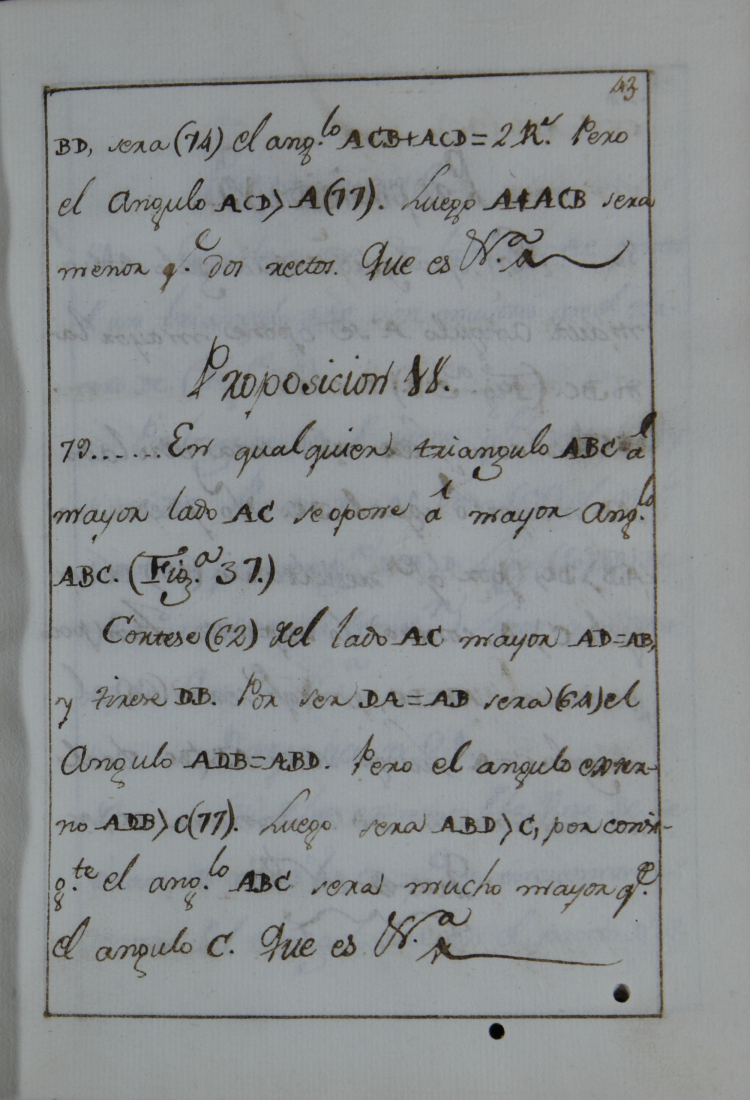 43
BD, sera (74) el ang.lo ACB+ACD=2R.s Pero
el Angulo ACD>A(77). Luego A+ACB sera
menor q.e dos rectos. Que es N.a
Proposicion 18.
79......En qualquier triangulo ABC al
mayor lado AC se opone al mayor Ang.lo
ABC. (Fig.a 37.)
Cortese (62) del lado AC mayor AD=AB,
y tirese DB. Por ser DA=AB sera (61) el
Angulo ADB=ABD. Pero el angulo exter-
no ADB>C(77). Luego sera ABD>C, por consi-
g.te el ang.lo ABC sera mucho mayor q.e
el angulo C. Que es N.a